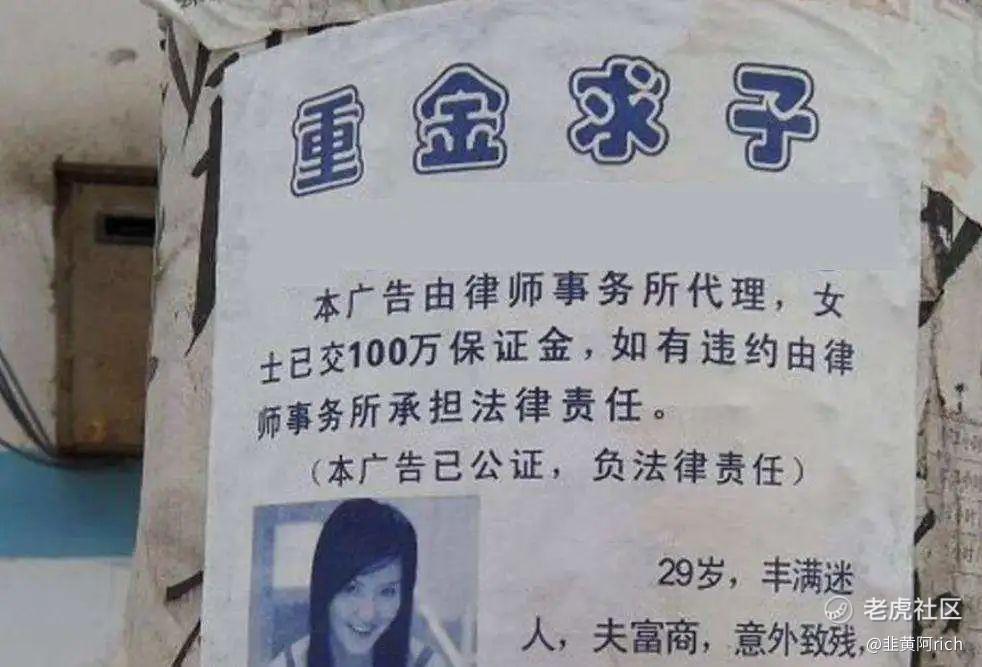 重金求子
本广告由律师事务所代理，女
士已交100万保证金，如有违约由律
师事务所承担法律责任。
（本广告已公证，负法律责任）
29岁，丰满迷
人，夫富商，意外致残，
老虎社区
@韭黄阿rich